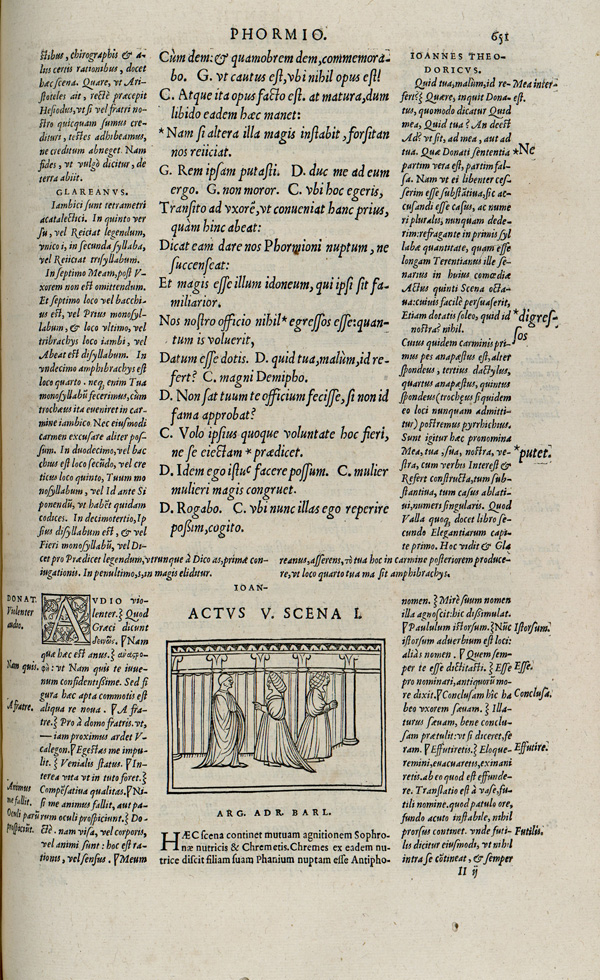 PHORMIO. 651
ctibus, chirographis & a-
liis certis rationibus, docet
hæc scena. Quare, vt Ari-
stoteles ait, rectè præcepit
Hesiodus, vt si vel fratri no-
stro quicquam sumus cre-
dituri, testes adhibeamus,
ne creditum abneget. Nam
fides, vt vulgò dicitur, de
terra abiit.
GLAREANVS.
Iambici sunt tetrametri
acatalectici. In quinto ver
su, vel Reiiciat legendum,
vnico i, in secunda syllaba,
vel Reiiciat trisyllabum.
In septimo Meam, post V-
xorem non est omittendum.
Et septimo loco vel bacchi-
us est, vel Prius monosyl-
labum, & loco vltimo, vel
tribrachys loco iambi, vel
Abeat disyllabum. In
vndecimo amphibrachys est
loco quarto. neq, enim Tua
monosyllabũ fecerimus, cùm
trochæus ita eueniret in car-
mine iambico. Nec eiusmodi
carmen excusare aliter pos-
sum. In duodecimo, vel bac
chius est loco secũdo, vel cre
ticus loco quinto, Tuum mo
nosyllabum, vel Id ante Si
ponendũ, vt habẽt quidam
codices. In decimotertio, Ip
sius disyllabum est, & vel
Fieri monosyllabũ, vel Di-
cet pro Prædicet legendum, vtrunque à Dico as, primæ con-
iugationis. In penultimo, s, in magis eliditur.
Cùm dem: & quamobrem dem, commemora-
bo. G. vt cautus est, vbi nihil opus est!
C. Atque ita opus facto est. at matura, dum
libido eadem hæc manet:
*Nam si altera illa magis instabit, forsitan
nos reiiciat.
G. Rem ipsam putasti. D. duc me ad eum
ergo. G. non moror. C. vbi hoc egeris,
Transito ad vxorẽ, vt conueniat hanc prius,
quàm hinc abeat:
Dicat eam dare nos Phormioni nuptum, ne
succenseat:
Et magis esse illum idoneum, qui ipsi sit fa-
miliarior.
Nos nostro officio nihil* egressos esse: quan-
tum is voluerit,
Datum esse dotis. D. quid tua, malùm, id re-
fert? C. magni Demipho.
D. Non sat tuum te officium fecisse, si non id
fama approbat?
C. Volo ipsius quoque voluntate hoc fieri,
ne se eiectam * prædicet.
D. Idem ego istuc facere possum. C. mulier
mulieri magis congruet.
D. Rogabo. C. vbi nunc illas ego reperire
possim, cogito.
IOANNES THEO-
DORICVS.
Quid tua, malùm, id re- Mea inter
fert?ξ Quære, inquit Dona- est.
tus, quomodo dicatur Quid
mea, Quid tua? An deest
Ad? vt sit, ad mea, aut ad
tua. Quæ Donati sententia *Ne
partim vera est, partim fal-
sa. Nam vt ei libenter ces-
serim esse substãtiua, sic ac-
cusandi esse casus, ac nume
ri pluralis, nunquam dede-
rim: refragante in primis syl
labæ quantitate, quam esse
longam Terentianus ille se-
narius in huius comœdiæ
Actus quinti Scena octa-
ua: cuiuis facilè persuaserit,
Etiam dotatis soleo, quid id *digres-
nostra? nihil. sos
Cuius quidem carminis pri-
mus pes anapæstus est, alter
spondeus, tertius dactylus,
quartus anapæstus, quintus
spondeus (trochęus siquidem
eo loci nunquam admitti-
tur) postremus pyrrhichius.
Sunt igitur hæc pronomina *putet.
Mea, tua, sua, nostra, ve-
stra, cum verbis Interest &
Refert constructa, tum sub-
stantiua, tum casus ablati-
ui, numeri singularis. Quod
Valla quoq, docet libro se-
cundo Elegantiarum capi-
te primo. Hoc vidit & Gla
reanus, asserens, τὸ tua hoc in carmine posteriorem produce-
re, vt loco quarto tua ma sit amphibrachys.
IOAN-
DONAT.
Violenter
audio.
AVDIO vio-
lenter.ξ Quod
Græci dicunt
Nam quis.
quæ hæc est anus.ξ
vt Nam quis te iuue-
num confidentissime. Sed fi
gura hæc apta commotis est
A fratre.
aliqua re noua. A fra-
tre.ξ Pro à domo fratris. vt,
— iam proximus ardet V-
calegon. Egestas me impu-
lit.ξ Venialis status. In-
terea vita vt in tuto foret.ξ
Animus
me fallit.
Compẽsatiua qualitas. Ni-
si me animus fallit, aut pa-
Oculi parũ
prospiciũt.
rum oculi prospiciunt.ξ Do-
ctè. nam visa, vel corporis,
vel animi sunt: hoc est ra-
tionis, vel sensus. Meum
ACTVS V. SCENA I.
ARG. ADR. BARL.
HÆC scena continet mutuam agnitionem Sophro-
næ nutricis & Chremetis. Chremes ex eadem nu-
trice discit filiam suam Phanium nuptam esse Antipho-
nomen.ξ Mirè suum nomen
illa agnoscit: hic dissimulat.
Paululum istorsum.ξ Nũc Istorsum.
istorsum aduerbium est loci:
aliâs nomen. Quem sem-
per te esse dictitasti.ξ Esse Esse.
pro nominari, antiquorũ mo-
re dixit. Conclusam hîc ha Conclusa.
beo vxorem sæuam.ξ Illa-
turus sæuam, bene conclu-
sam prætulit: vt si diceret, fe
ram. Effutiretis.ξ Eloque- Effutire.
remini, euacuaretis, exinani
retis. ab eo quod est effunde-
re. Translatio est à vase, fu-
tili nomine. quod patulo ore,
fundo acuto instabile, nihil
prorsus continet. vnde futi- Futilis.
lis dicitur eiusmodi, vt nihil
intra se cõtineat, & semper
II ij